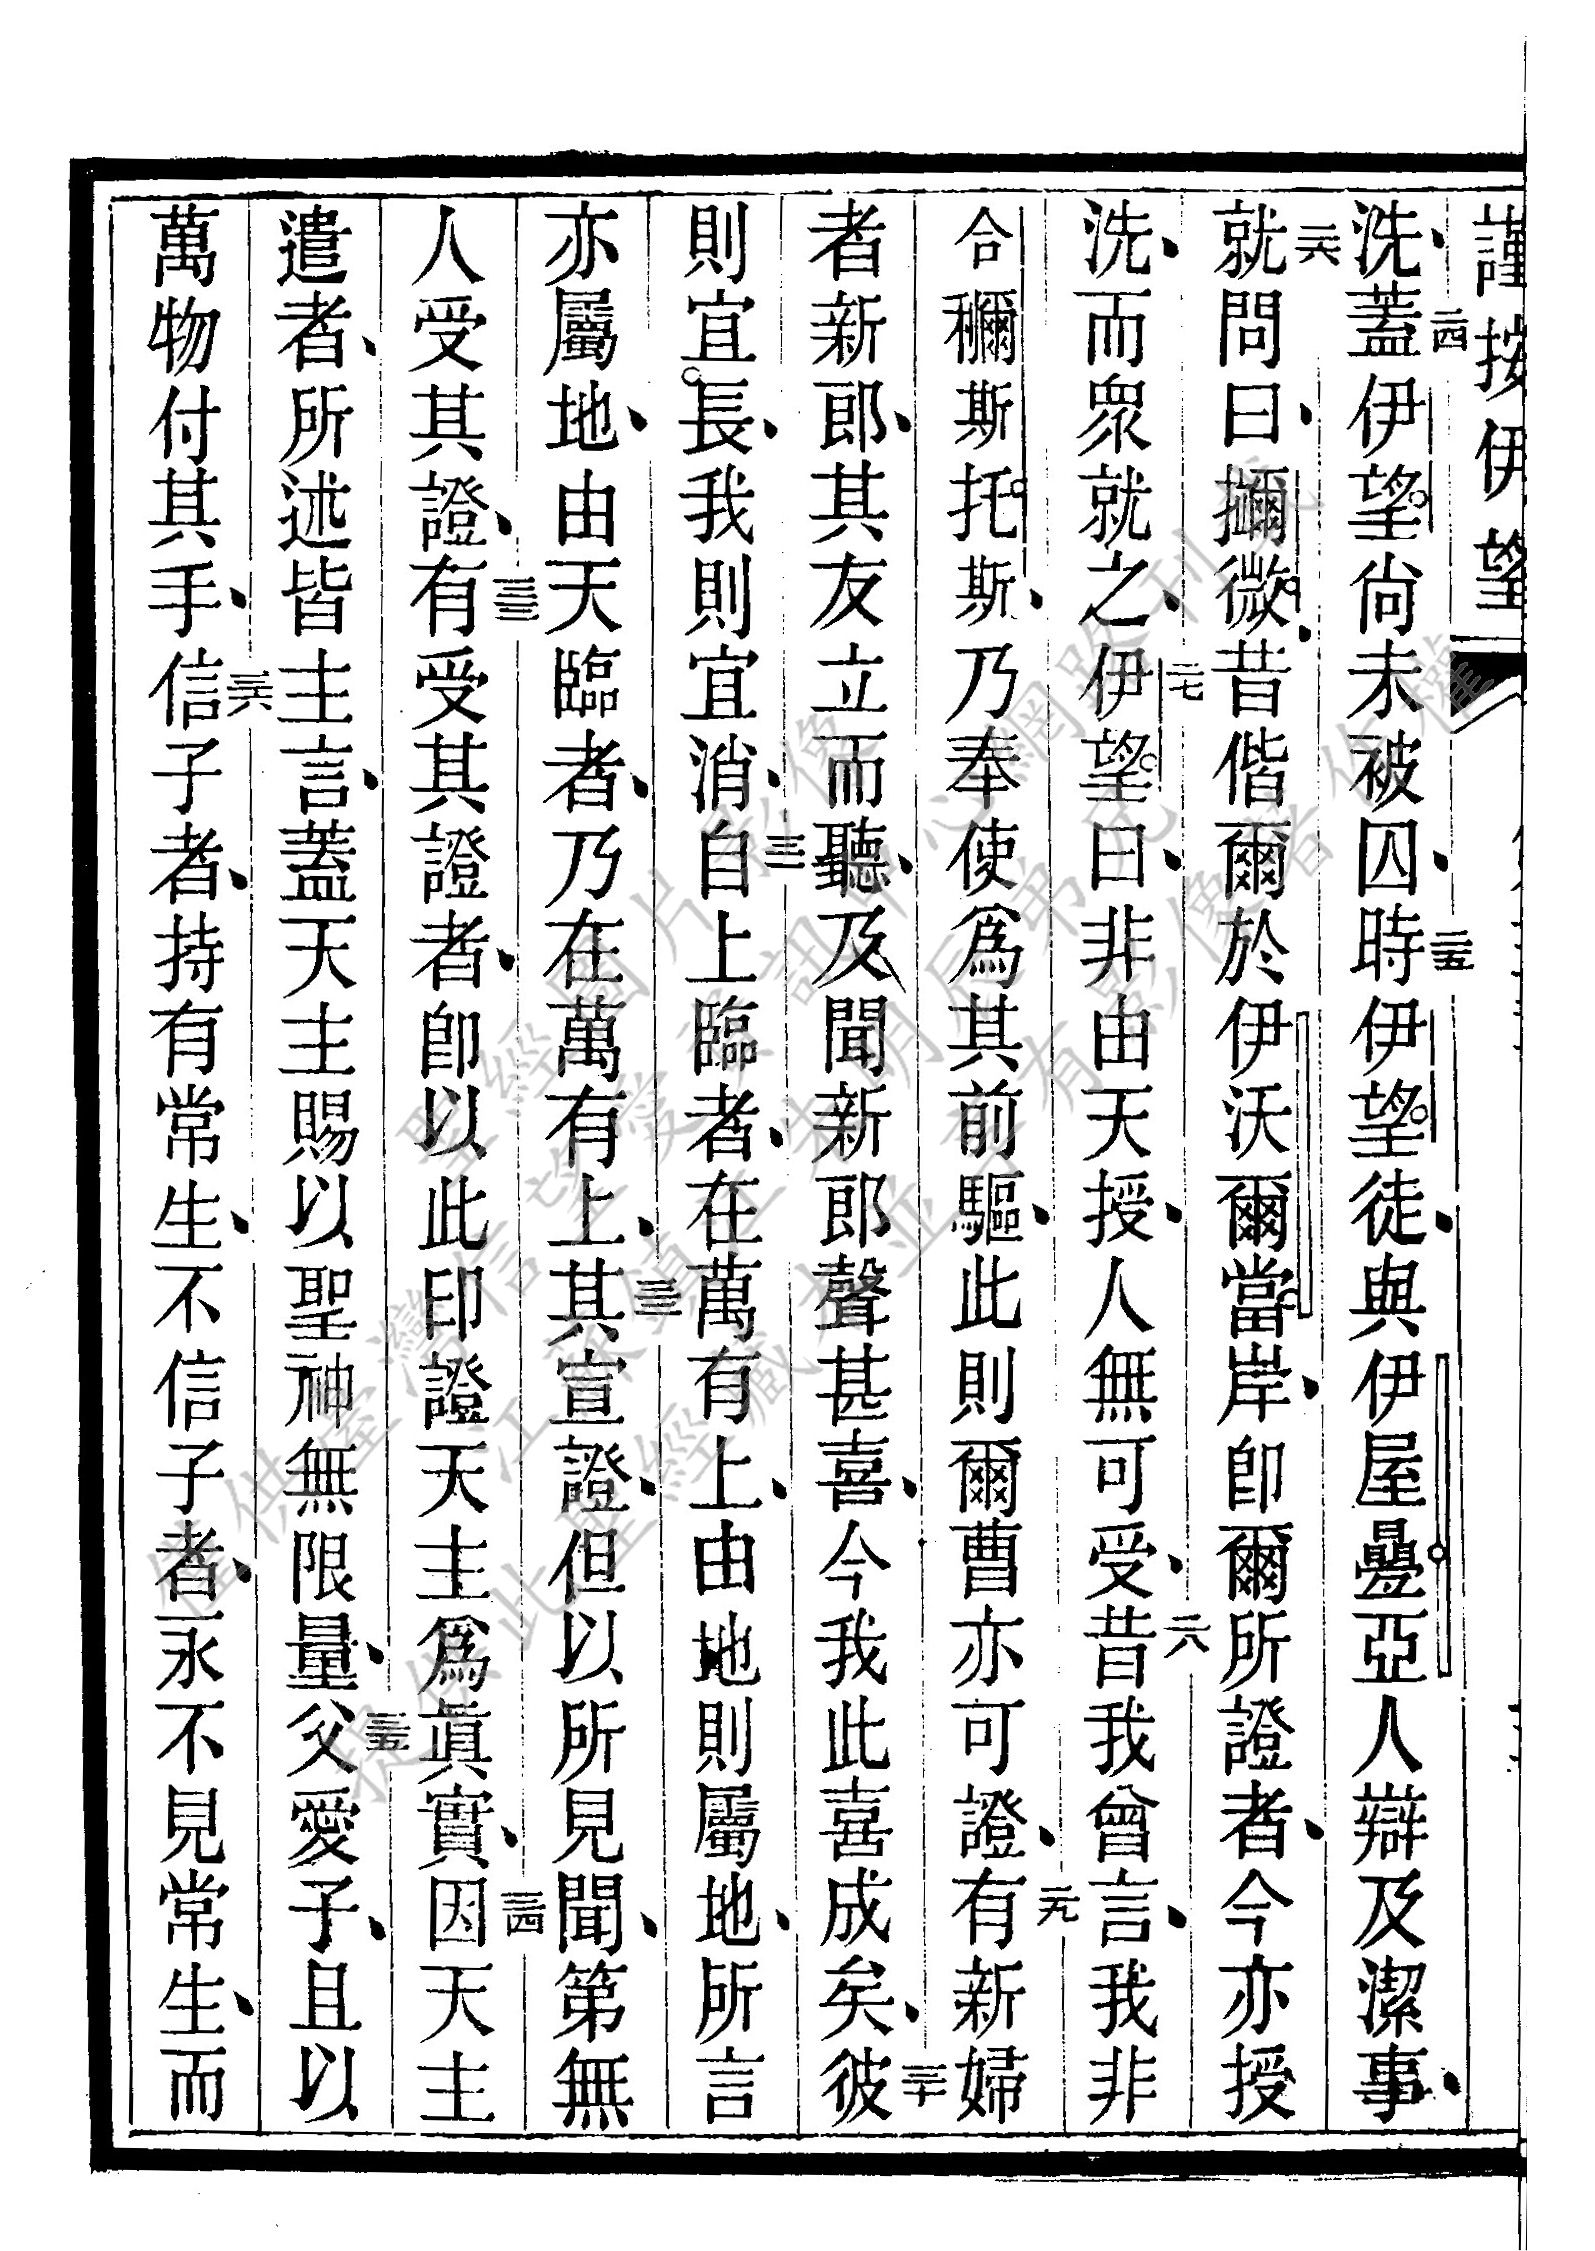 謹按伊望
洗、蓋二四伊望尚未被囚、時二五伊望徒、與伊屋疊亞人辯及潔事、
就二六問曰、微、昔偕爾於伊沃爾當岸、即爾所證者、今亦授
洗、而眾就之、伊二七望曰、非由天授、人無可受、昔二八我曾言、我非
合穪斯托斯、乃奉使為其前驅、此則爾曹亦可證、有二九新婦
者新郎、其友立而聽、及聞新郎聲甚喜、今我此喜成矣、彼三十
則宜長、我則宜消、自三一上臨者、在萬有上、由地則屬地、所言
亦屬地、由天臨者、乃在萬有上、其三二宣證、但以所見聞、第無
人受其證、有三三受其證者、即以此印證天主為眞實、因三四天主
遣者、所述皆主言、蓋天主賜以聖神無限量、父三五愛子、且以
萬物付其手、信三六子者、持有常生、不信子者、永不見常生、而
聖經圖片影像
提供此聖經藏本並享有影像著作權